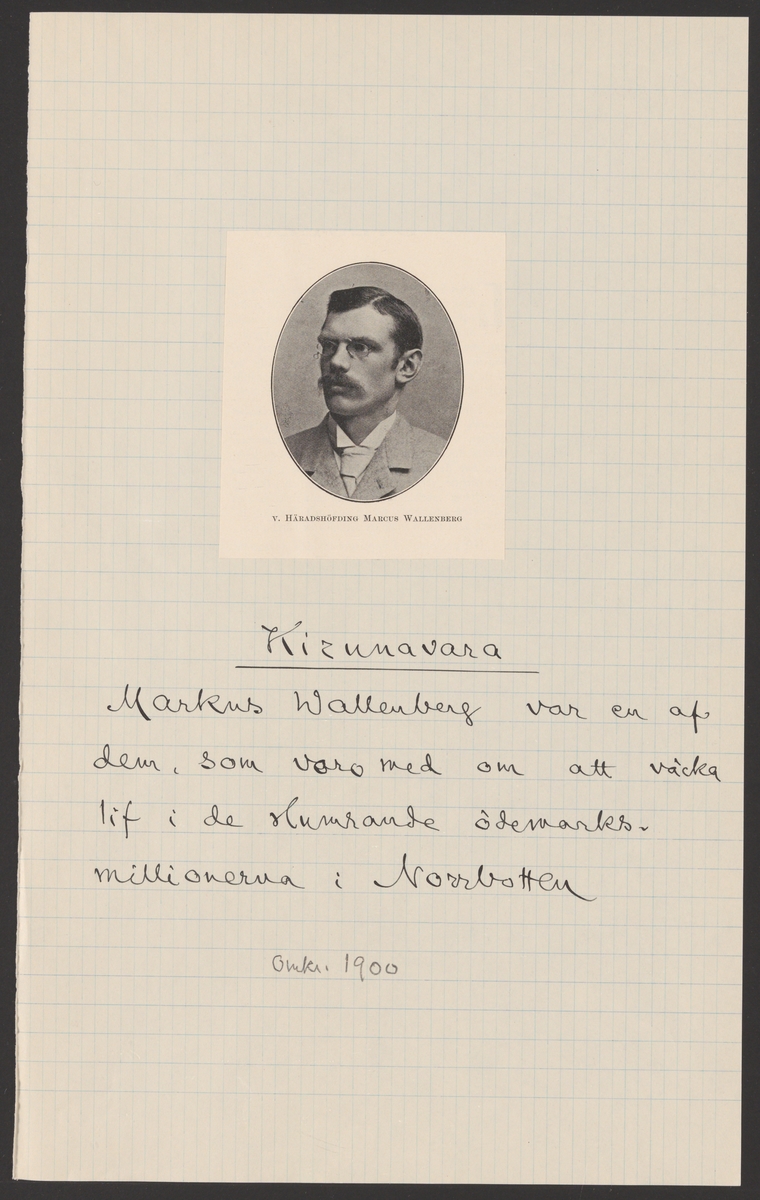 V. HÄRADSHÖFDING MARCUS WALLENBERG
Kirunavara
Markus Wallenberg var en af
dem, som voro med om att väcka
lif i de slumrande ödemarks-
millionerna i Norrbotten
Omkr. 1900